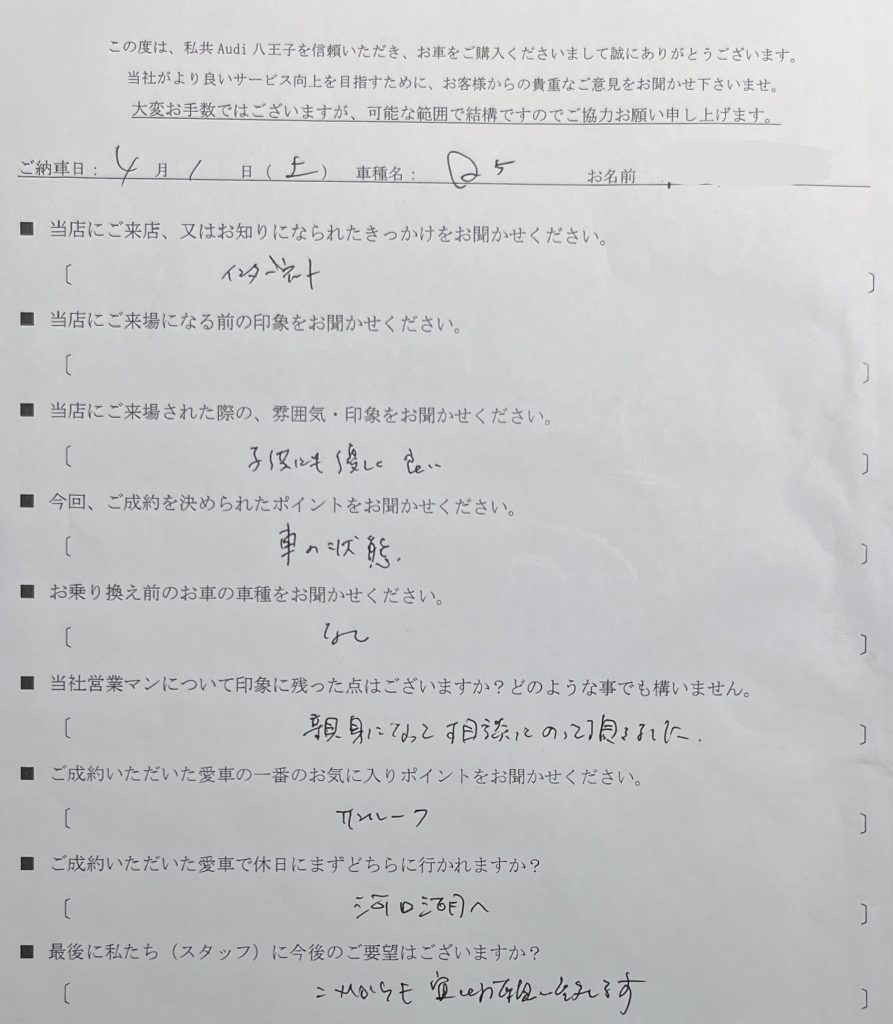 この度は、私共 Audi 八王子を信頼いただき、お車をご購入くださいまして誠にありがとうございます。
当社がより良いサービス向上を目指すために、お客様からの貴重なご意見をお聞かせ下さいませ。
大変お手数ではございますが、可能な範囲で結構ですのでご協力お願い申し上げます。
ご納車日： 4 月 1 日（土） 車種名： Q5 お名前
■ 当店にご来店、又はお知りになられたきっかけをお聞かせください。
〔 インターネット 〕
■ 当店にご来場になる前の印象をお聞かせください。
〔 〕
■ 当店にご来場された際の、雰囲気・印象をお聞かせください。
〔 子供にも優しく良い 〕
■ 今回、ご成約を決められたポイントをお聞かせください。
〔 車の状態. 〕
■ お乗り換え前のお車の車種をお聞かせください。
〔 なし 〕
■ 当社営業マンについて印象に残った点はございますか？どのような事でも構いません。
〔 親身になって相談にのって頂きました. 〕
■ ご成約いただいた愛車の一番のお気に入りポイントをお聞かせください。
〔 サンルーフ 〕
■ ご成約いただいた愛車で休日にまずどちらに行かれますか？
〔 河口湖へ 〕
■ 最後に私たち（スタッフ）に今後のご要望はございますか？
〔 これからも宜しくお願い致します 〕